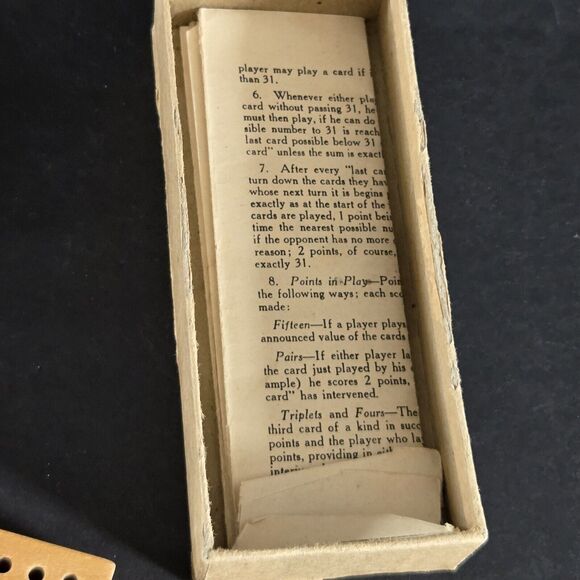 player may play a card if
than 31.
6. Whenever either
card without passing 31, he
must then play, if he can do
sible number to 31 is
last card possible below 31
card" unless the sum is
7. After every "last
turn down the cards they
whose next turn it is begins
exactly as at the start of the
cards are played, 1 point
time the nearest possible
if the opponent has no more
reason; 2 points, of course,
exactly 31.
8. Points in Play—
the following ways; each
made:
Fifteen—If a player plays
announced value of the cards
Pairs—If either player
the card just played by his
ample) he scores 2 points,
card" has intervened.
Triplets and Fours—The
third card of a kind in
points and the player who
points, providing in